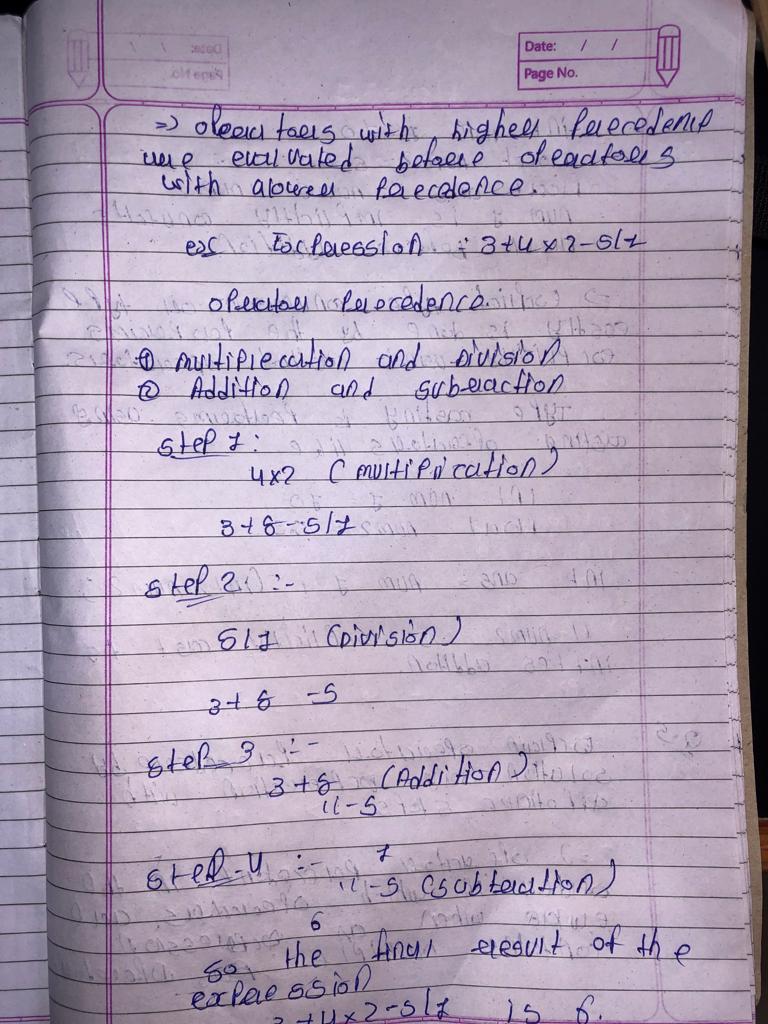 Date: / /
Page No.
=> operators with higher precedence
are evaluated before operators
with a lower precedence.
ex Expression : 3+4x2-5/1
operator precedence.
① multiplecation and Division
② Addition and subtraction
step 1:
4x2 (multiplication)
3+8-5/1
step 2 :-
5/1 (Division)
3+8 -5
step 3 :-
3+8 (Addition)
11-5
step-4 :-
11-5 (subtraction)
6
so the final result of the
expression
3+4x2-5/1 is 6.